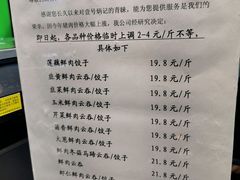 感谢您长久以来对壹号炳记的青睐，能为您提供服务是我们的
荣幸，因今年猪肉价格大幅上涨，我公司经研究决定：
即日起，各品种价格临时上调2-4元/斤不等，
具体如下
莲藕鲜肉饺子 19.8元/斤
韭黄鲜肉云吞/饺子 19.8元/斤
韭菜鲜肉云吞/饺子 19.8元/斤
玉米鲜肉云吞/饺子 19.8元/斤
芹菜鲜肉云吞/饺子 19.8元/斤
茴香鲜肉云吞/饺子 19.8元/斤
大葱鲜肉云吞/饺子 19.8元/斤
鲜肉冬菇马蹄云吞/饺子 21.8元/斤
鲜肉云吞 21.8元/斤
鲜虾鲜肉云吞/饺子